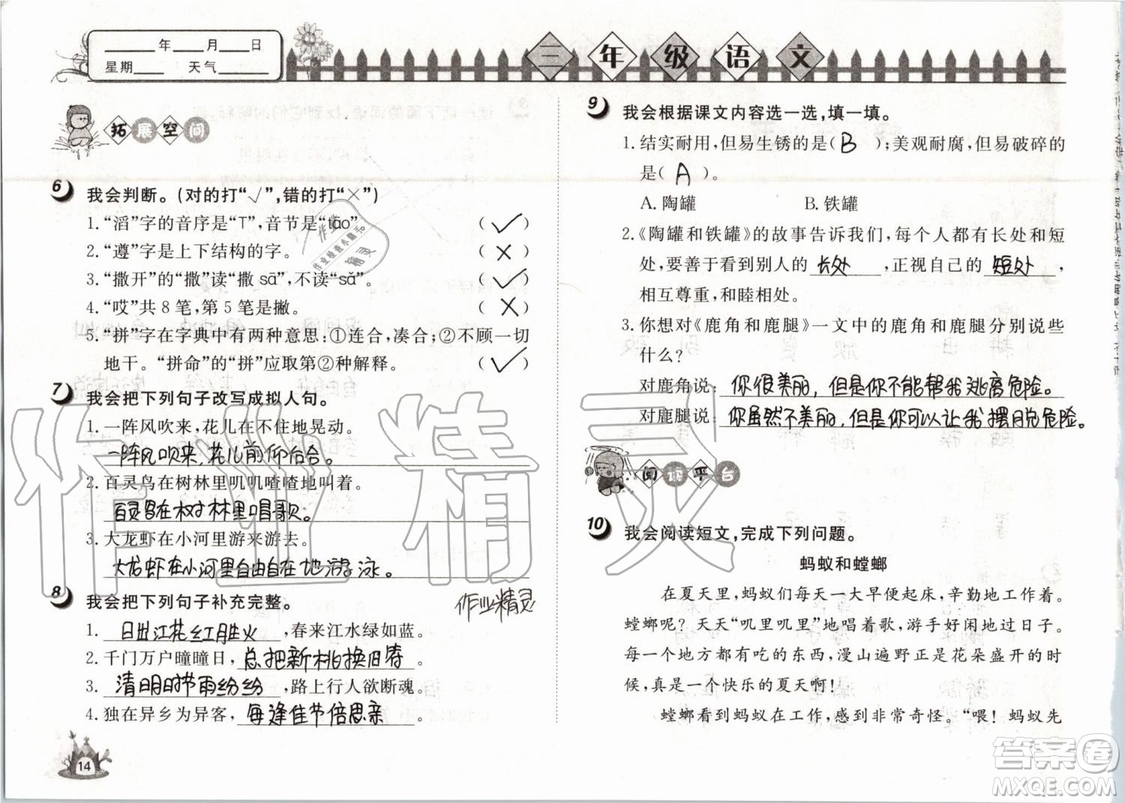 ____年____月____日
星期____ 天气____
三年级语文
拓展空间
6 我会判断。(对的打“√”,错的打“×”)
1.“滔”字的音序是“T”,音节是“tāo” (√)
2.“遵”字是上下结构的字。 (×)
3.“撒开”的“撒”读“撒 sā”,不读“sǎ”。 (√)
4.“哎”共8笔,第5笔是撇。 (×)
5.“拼”字在字典中有两种意思:①连合,凑合;②不顾一切
地干。“拼命”的“拼”应取第②种解释。 (√)
7 我会把下列句子改写成拟人句。
1.一阵风吹来,花儿在不住地晃动。
一阵风吹来,花儿前仰后合。
2.百灵鸟在树林里叽叽喳喳地叫着。
百灵鸟在树林里唱歌。
3.大龙虾在小河里游来游去。
大龙虾在小河里自由自在地游泳。
8 我会把下列句子补充完整。
作业精灵
1. 日出江花红胜火,春来江水绿如蓝。
2.千门万户曈曈日,总把新桃换旧符。
3. 清明时节雨纷纷,路上行人欲断魂。
4.独在异乡为异客,每逢佳节倍思亲。
14
9 我会根据课文内容选一选,填一填。
1.结实耐用,但易生锈的是( B );美观耐腐,但易破碎的
是( A )。
A.陶罐 B.铁罐
2.《陶罐和铁罐》的故事告诉我们,每个人都有长处和短
处,要善于看到别人的 长处 ,正视自己的 短处 ,
相互尊重,和睦相处。
3.你想对《鹿角和鹿腿》一文中的鹿角和鹿腿分别说些
什么?
对鹿角说:你很美丽,但是你不能帮我逃离危险。
对鹿腿说:你虽然不美丽,但是你可以让我摆脱危险。
阅读平台
10 我会阅读短文,完成下列问题。
蚂蚁和螳螂
在夏天里,蚂蚁们每天早早起床,辛勤地工作着。
螳螂呢?天天“叽里叽里”地唱着歌,游手好闲地过日子。
每一个地方都有吃的东西,漫山遍野正是花朵盛开的时
候,真是一个快乐的夏天啊!
螳螂看到蚂蚁在工作,感到非常奇怪。“喂!蚂蚁先
作业精灵
答案圈
MXQE.COM